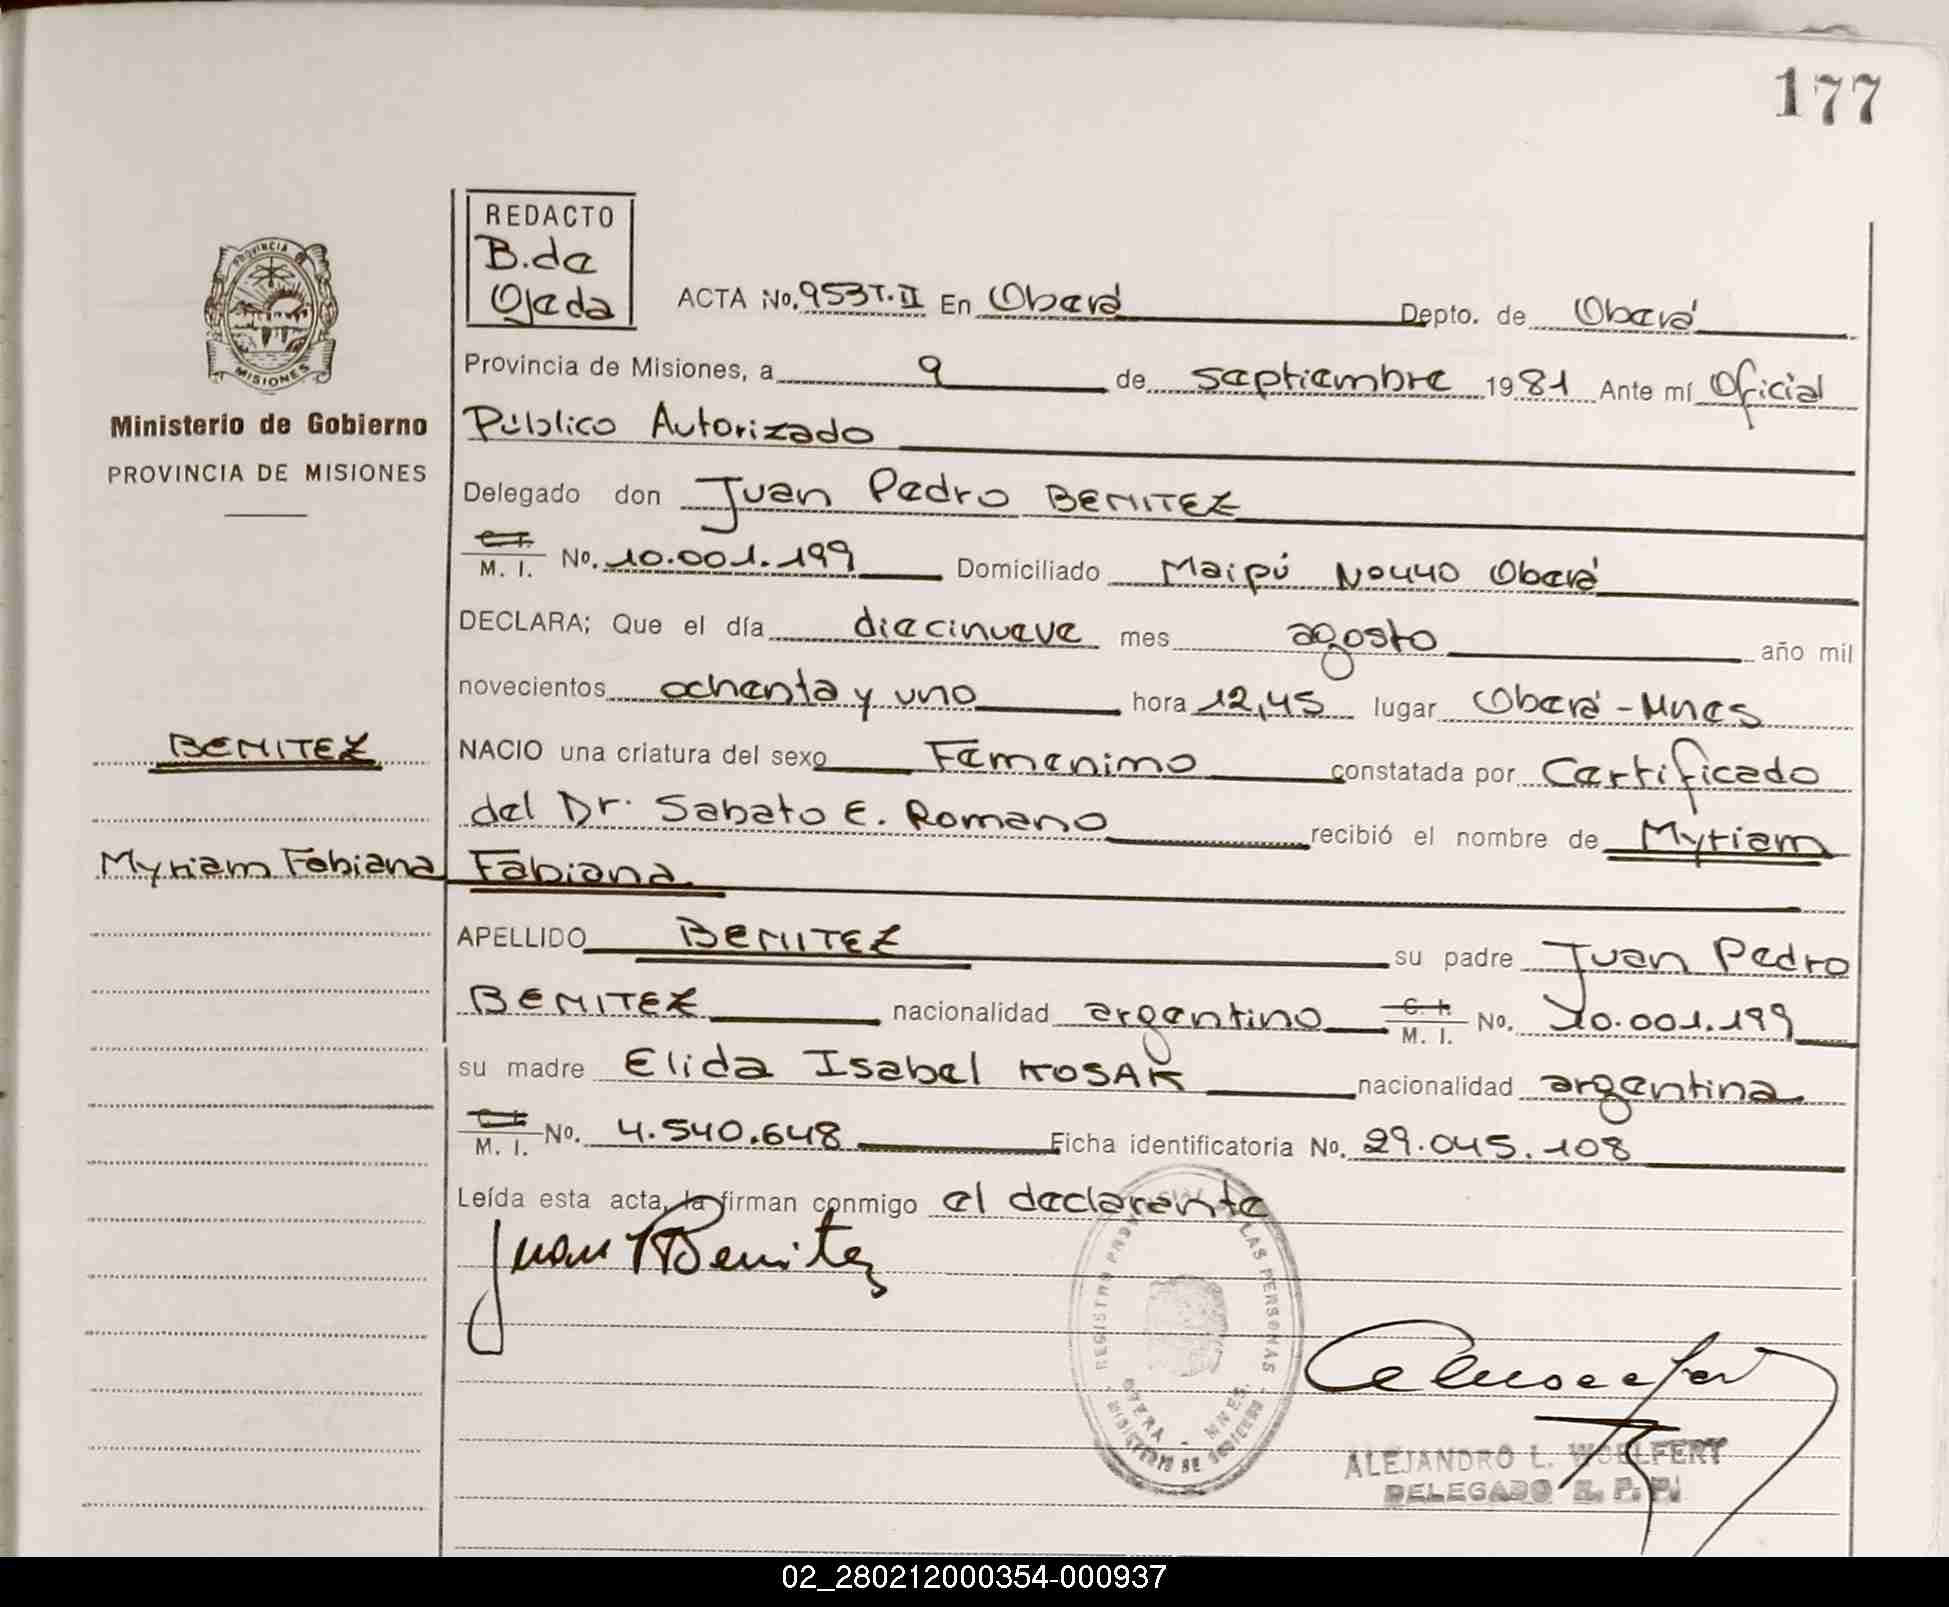 177
REDACTO
B. de
Ojeda
ACTA No. 953 T. II En Oberá Depto. de Oberá
Provincia de Misiones, a 9 de septiembre 1981 Ante mí Oficial
Público Autorizado
Delegado don Juan Pedro BENITEZ
C. I.
M. I. No. 10.001.199 Domiciliado Maipú Nº 440 Oberá
DECLARA; Que el día diecinueve mes agosto año mil
novecientos ochenta y uno hora 12,45 lugar Oberá - Mnes
NACIO una criatura del sexo Femenimo constatada por Certificado
del Dr. Sabato E. Romano recibió el nombre de Myriam
Fabiana
APELLIDO BENITEZ su padre Juan Pedro
BENITEZ nacionalidad argentino C. I.
M. I. No. 10.001.199
su madre Elida Isabel KOSAK nacionalidad argentina
C. I.
M. I. No. 4.540.648 Ficha identificatoria No. 29.045.108
Leída esta acta, la firman conmigo el declarante
Juan P Benitez
PROVINCIA
MISIONES
Ministerio de Gobierno
PROVINCIA DE MISIONES
BENITEZ
Myriam Fabiana
REGISTRO PROV LAS PERSONAS
OBERA - MNES.
MINISTERIO DE GOBIERNO
ALEJANDRO L. WOELFERT
DELEGADO R. P. P.
02_280212000354-000937